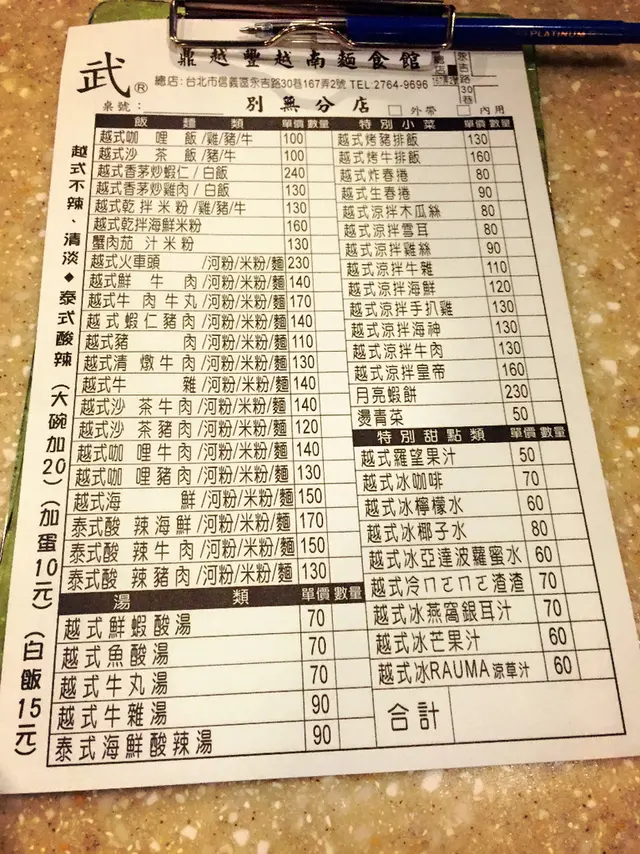 PLATINUM
武®
鼎越豐越南麵食館
總店:台北市信義區永吉路30巷167弄2號 TEL:2764-9696
永吉路30巷
桌號: 別無分店 □外帶 □內用
越式不辣、清淡◆泰式酸辣(大碗加20)(加蛋10元)(白飯15元)
飯 麵 類 單價 數量
越式咖 哩 飯/雞/豬/牛 100
越式沙 茶 飯/豬/牛 100
越式香茅炒蝦仁/白飯 240
越式香茅炒雞肉/白飯 130
越式乾拌米粉/雞/豬/牛 130
越式乾拌海鮮米粉 160
蟹肉茄 汁米粉 130
越式火車頭 /河粉/米粉/麵 230
越式鮮 牛 肉/河粉/米粉/麵 140
越式牛肉牛丸/河粉/米粉/麵 170
越式蝦仁豬肉/河粉/米粉/麵 140
越式豬 肉/河粉/米粉/麵 110
越式清 燉牛肉/河粉/米粉/麵 130
越式牛 雜/河粉/米粉/麵 140
越式沙 茶牛肉/河粉/米粉/麵 140
越式沙 茶豬肉/河粉/米粉/麵 120
越式咖 哩牛肉/河粉/米粉/麵 140
越式咖 哩豬肉/河粉/米粉/麵 130
越式海 鮮/河粉/米粉/麵 150
泰式酸 辣海鮮/河粉/米粉/麵 170
泰式酸 辣牛肉/河粉/米粉/麵 150
泰式酸 辣豬肉/河粉/米粉/麵 130
湯 類 單價 數量
越式鮮蝦酸湯 70
越式魚酸湯 70
越式牛丸湯 70
越式牛雜湯 90
泰式海鮮酸辣湯 90
特別小菜 單價 數量
越式烤豬排飯 130
越式烤牛排飯 160
越式炸春捲 80
越式生春捲 90
越式涼拌木瓜絲 80
越式涼拌雪耳 80
越式涼拌雞絲 90
越式涼拌牛雜 110
越式涼拌海鮮 120
越式涼拌手扒雞 130
越式涼拌海神 130
越式涼拌牛肉 130
越式涼拌皇帝 160
月亮蝦餅 230
燙青菜 50
特別甜點類 單價 數量
越式羅望果汁 50
越式冰咖啡 70
越式冰檸檬水 60
越式冰椰子水 80
越式冰亞達波蘿蜜水 60
越式冷ㄇㄛㄇㄛ渣渣 70
越式冰燕窩銀耳汁 70
越式冰芒果汁 60
越式冰RAUMA涼草汁 60
合計